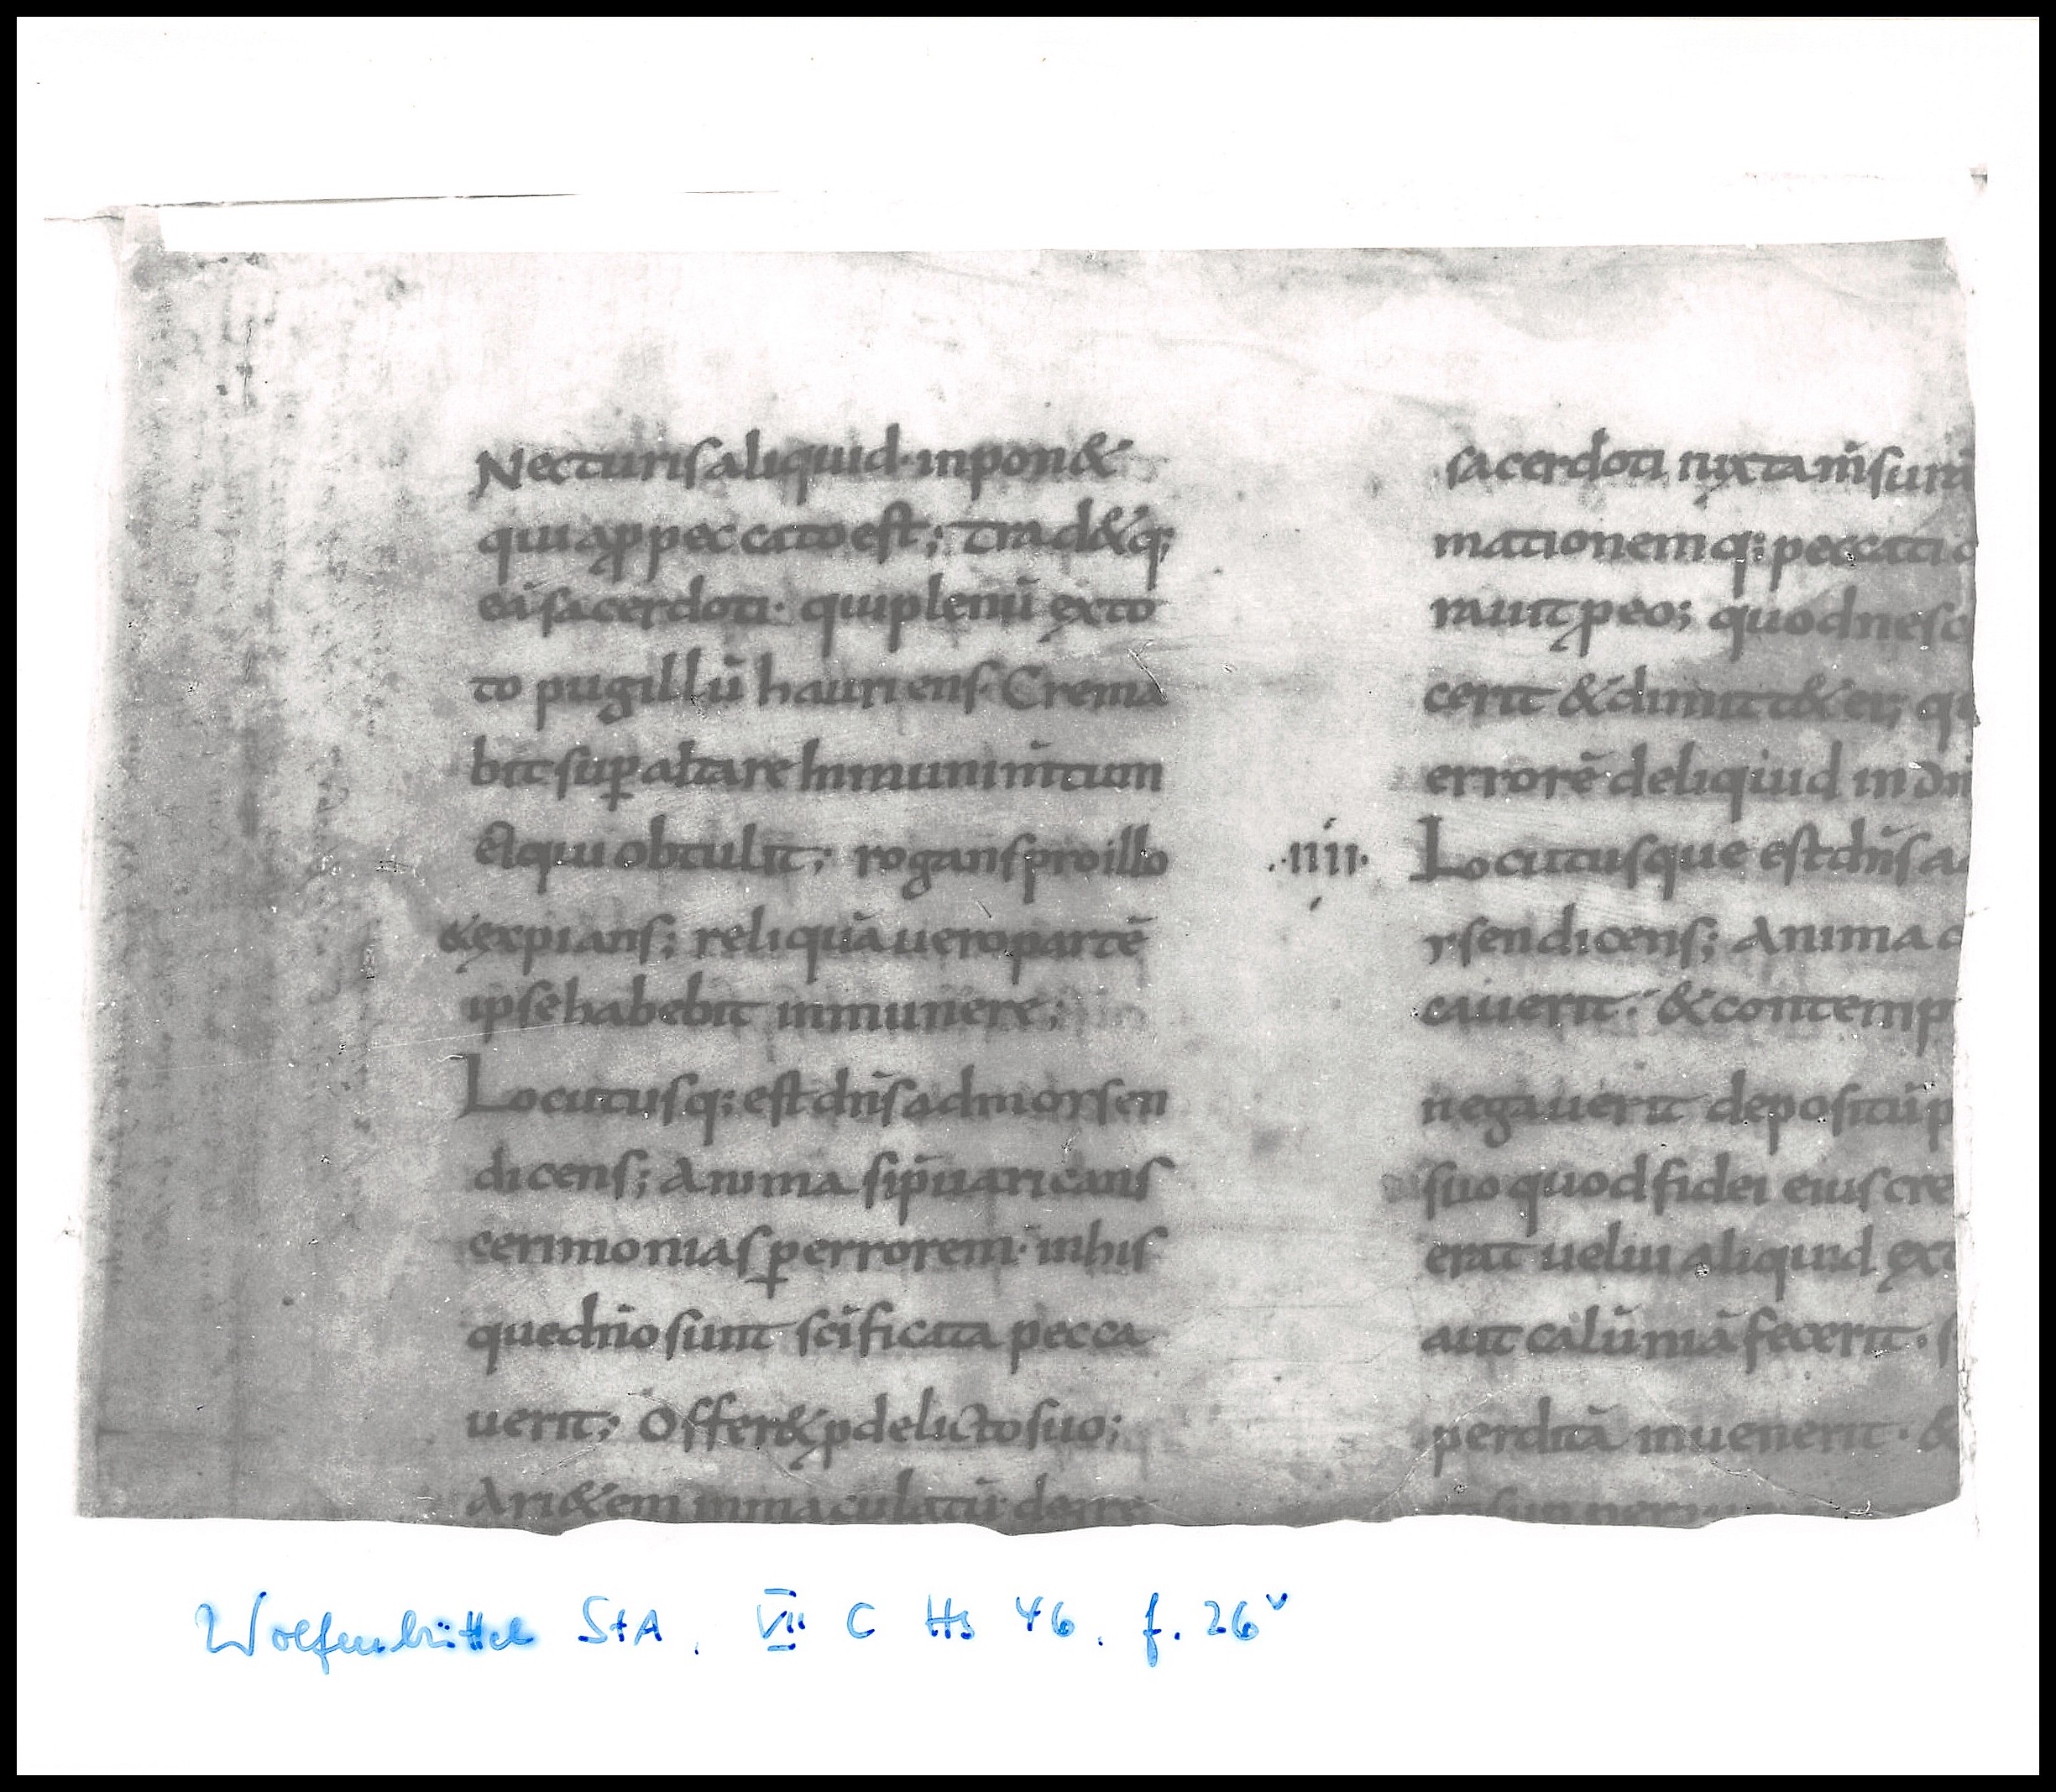 Necturis aliquid · inpon&
qui a p peccato est ; trad& q;
eā sacerdoti · qui plenū ęx to
to pugillū hauriens · Crema
bit sup altare In munim̄tum
ei qui obtulit ; rogans pro illo
& ęxpians ; reliquā uero partē
ipse habebit in munere ;
Locutus q; est dn̄s ad morsen
dicens ; Anima si p̄uaricans
cerimonias p errorem · in his
que dn̄o sunt scīficata pecca
uerit ; Offer& p delicto suo ;
Ari&em inmaculatū de gre
sacerdoti iuxta m̄surā
mationem q; peccati
rauit p eo ; quod nesc
cerit & dimitt& ei ; qu
errorē deliqiud in dn
·IIII· Locutusque est dn̄s a
rsen dicens ; Anima
cauerit · & contemp
negauerit depositū p
suo quod fidei eius cre
erat uel ui aliquid ęxt
aut calūniā fecerit · s
perditā inuenerit · &
Wolfenbüttel StA, VII C Hs 46. f. 26v